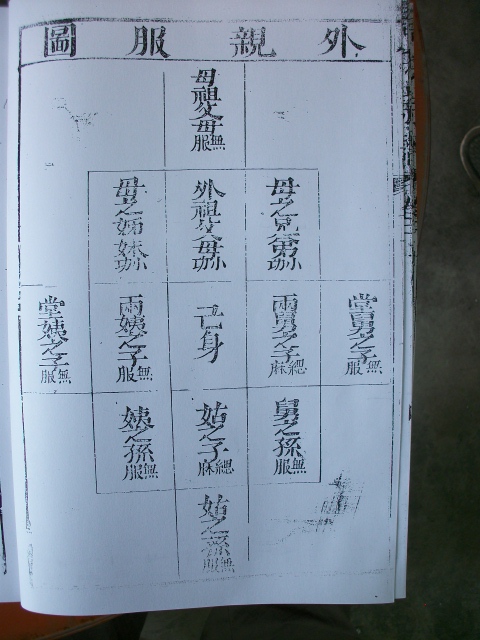 外親服圖
母祖父母無服
母之兄弟小功
外祖父母小功
母之姊妹小功
堂舅之子無服
兩舅之子緦麻
己身
兩姨之子無服
堂姨之子無服
舅之孫無服
姑之子緦麻
姨之孫無服
姑之孫無服